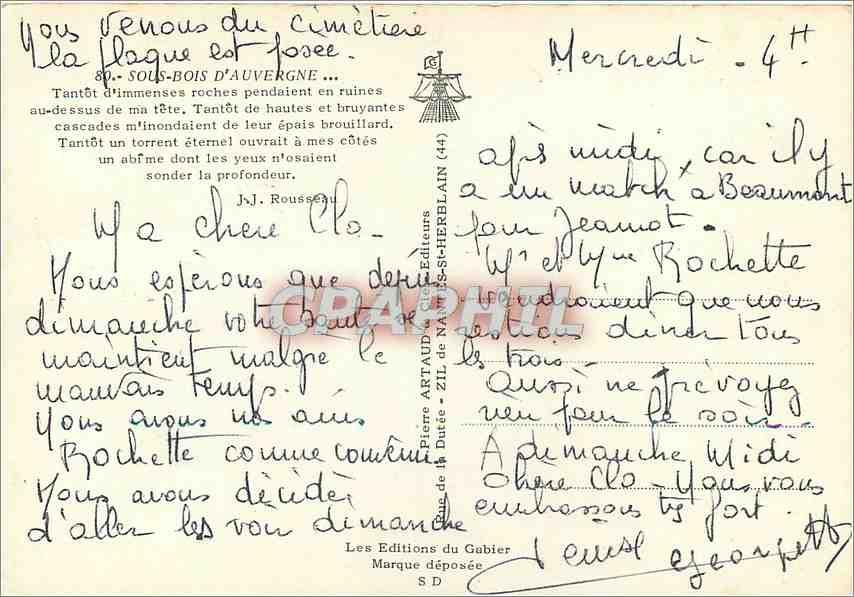 Nous venons du cimetière
la plaque est posée.
80.- SOUS-BOIS D'AUVERGNE ...
Tantôt d'immenses roches pendaient en ruines
au-dessus de ma tête. Tantôt de hautes et bruyantes
cascades m'inondaient de leur épais brouillard.
Tantôt un torrent éternel ouvrait à mes côtés
un abîme dont les yeux n'osaient
sonder la profondeur.
J.-J. Rousseau
Ma chère Clo -
Nous espérons que depuis
dimanche votre santé se
maintient malgré le
mauvais temps.
Nous avons nos amis
Rochette comme convenu.
Nous avons décidé
d'aller les voir dimanche
Les Editions du Gabier
Marque déposée
S D
Pierre ARTAUD & Cie, Editeurs
Rue de la Dutée - ZIL de NANTES-St-HERBLAIN (44)
CPAPHIL
Mercredi - 4H
après midi, car il y
a un match à Beaumont
pour Jeannot.
Mr et Mme Rochette
voudraient que nous
restions dîner tous
les trois -
Aussi ne prévoyez
rien pour le soir.
A dimanche Midi
chère Clo - Nous vous
embrassons très fort.
Denise Georgette